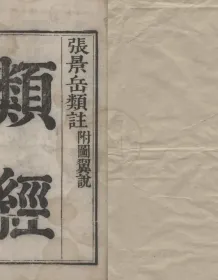 張景岳類註附圖翼說
類經